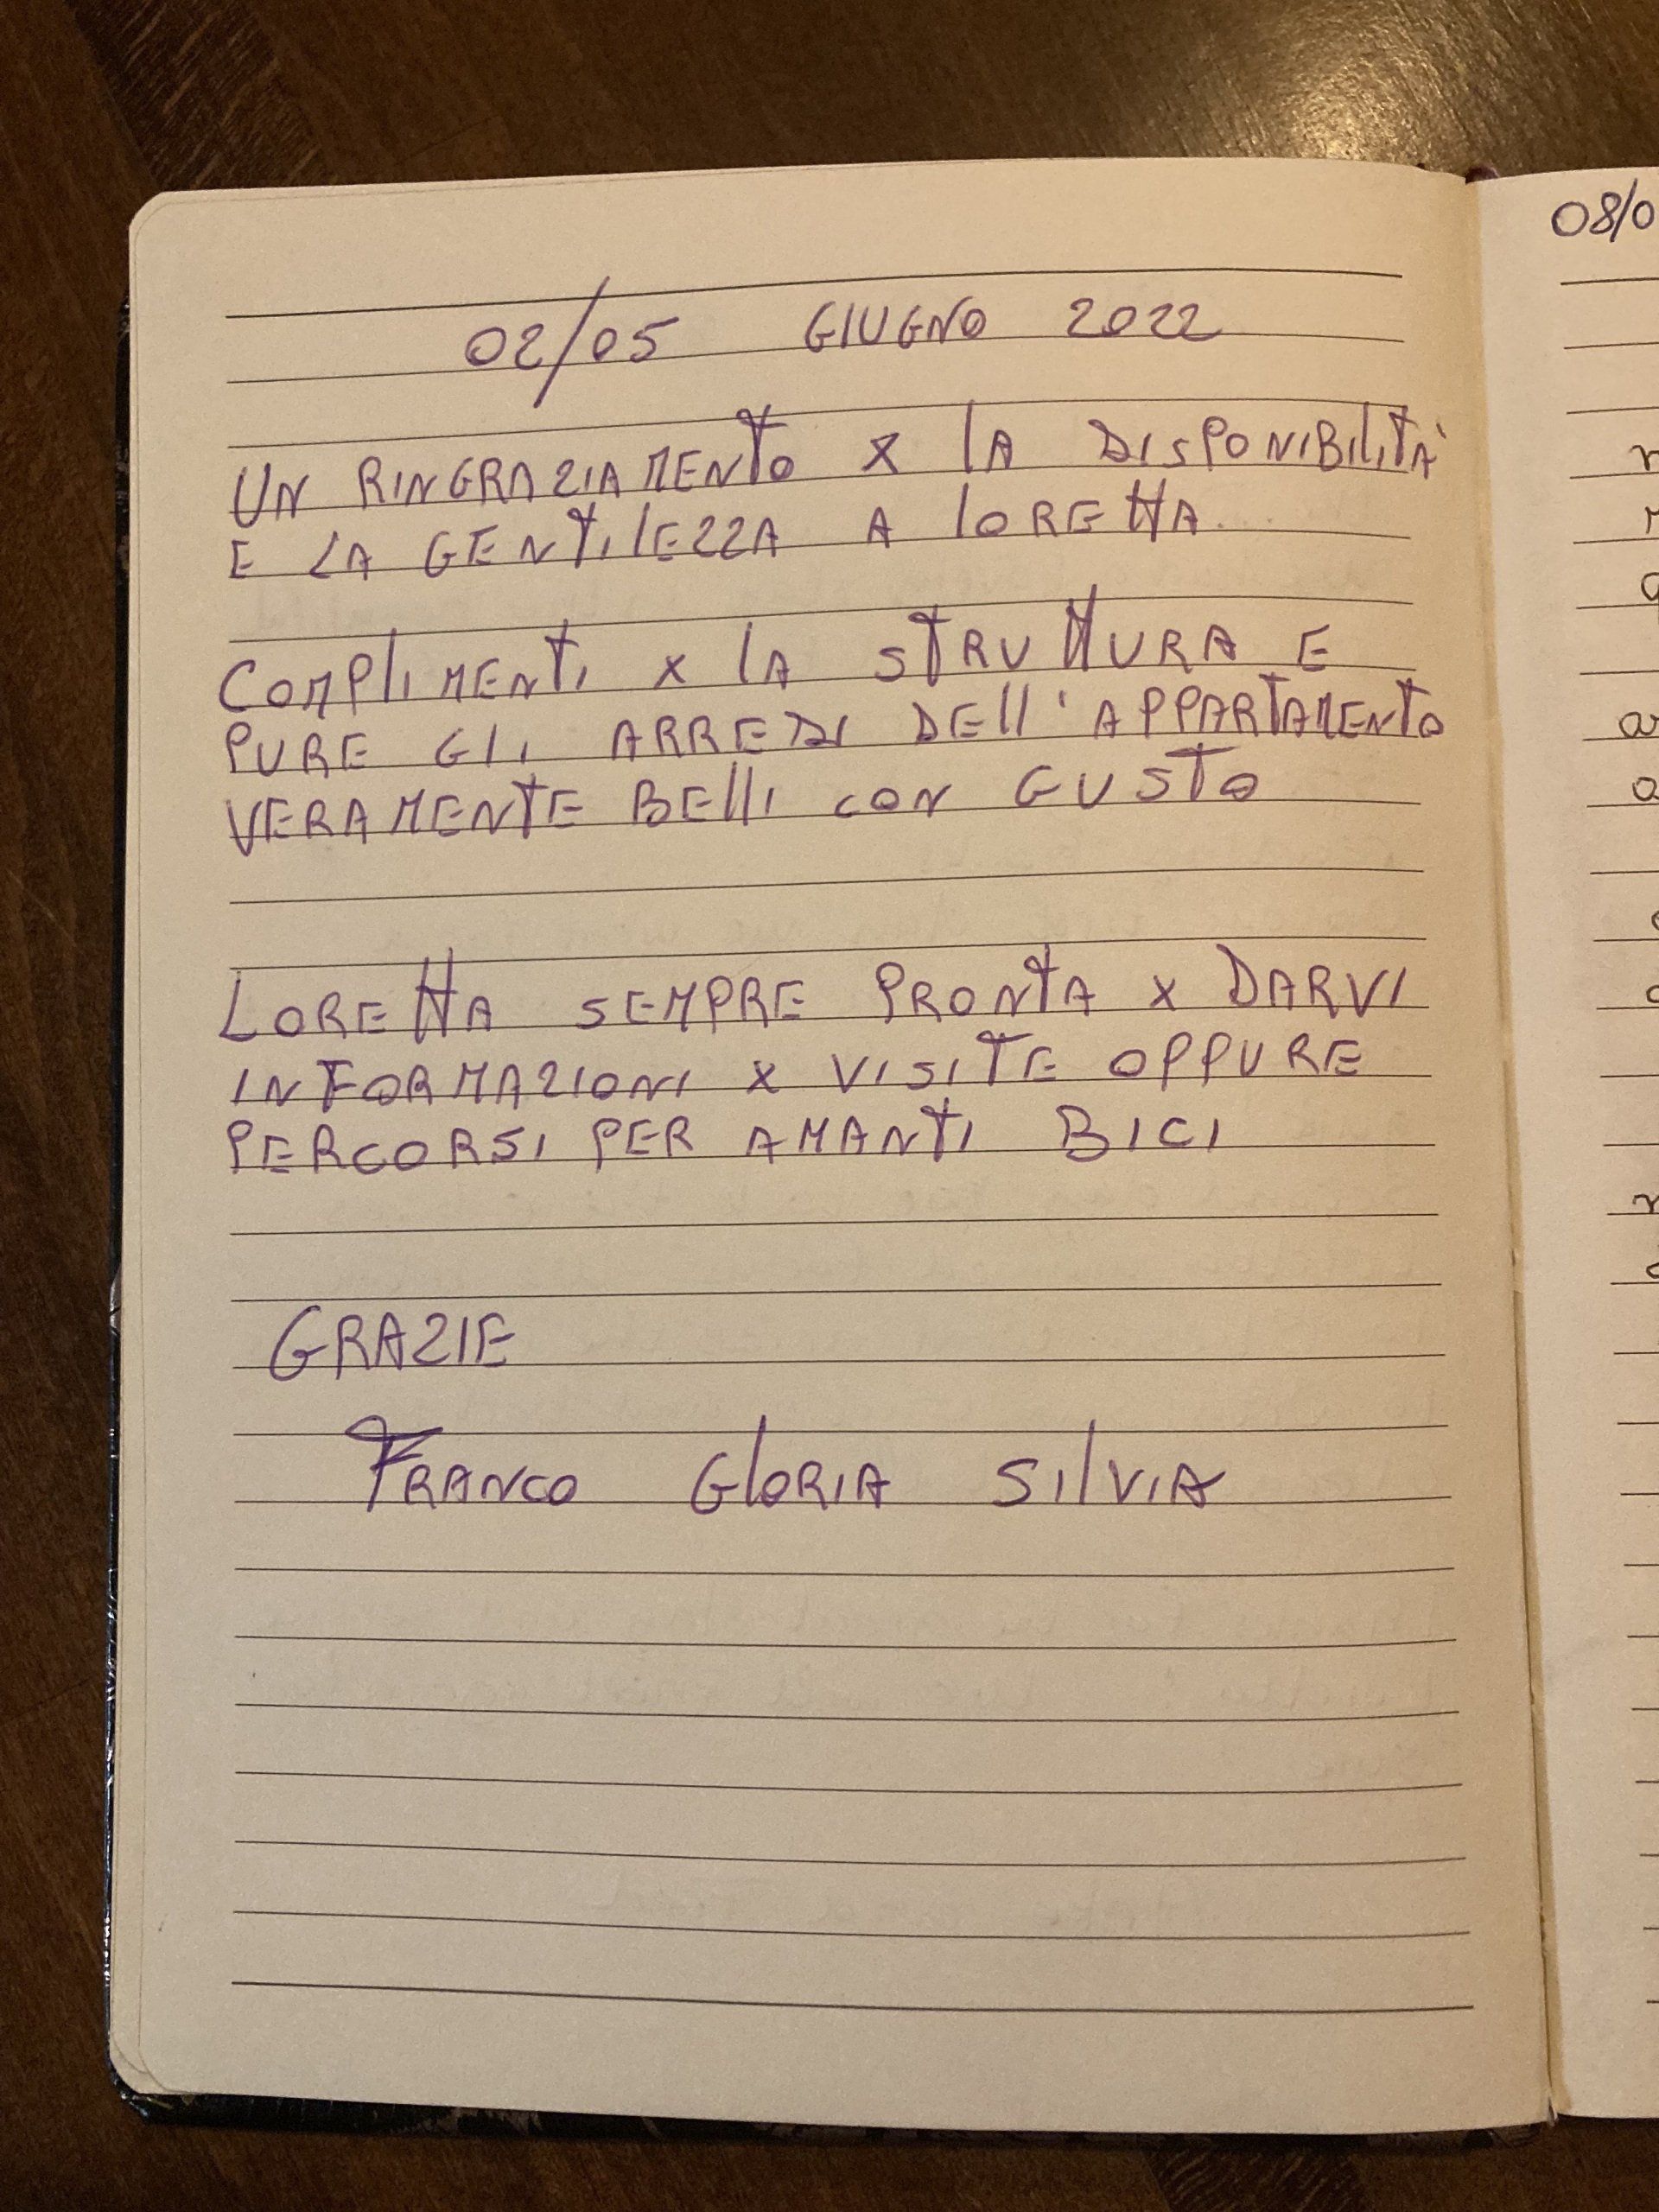 02/05 GIUGNO 2022
UN RINGRAZIAMENTO X LA DISPONIBILITÀ
E LA GENTILEZZA A LORETTA
COMPLIMENTI X LA STRUTTURA E
PURE GLI ARREDI DELL'APPARTAMENTO
VERAMENTE BELLI CON GUSTO
LORETTA SEMPRE PRONTA X DARVI
INFORMAZIONI X VISITE OPPURE
PERCORSI PER AMANTI BICI
GRAZIE
FRANCO GLORIA SILVIA
08/0